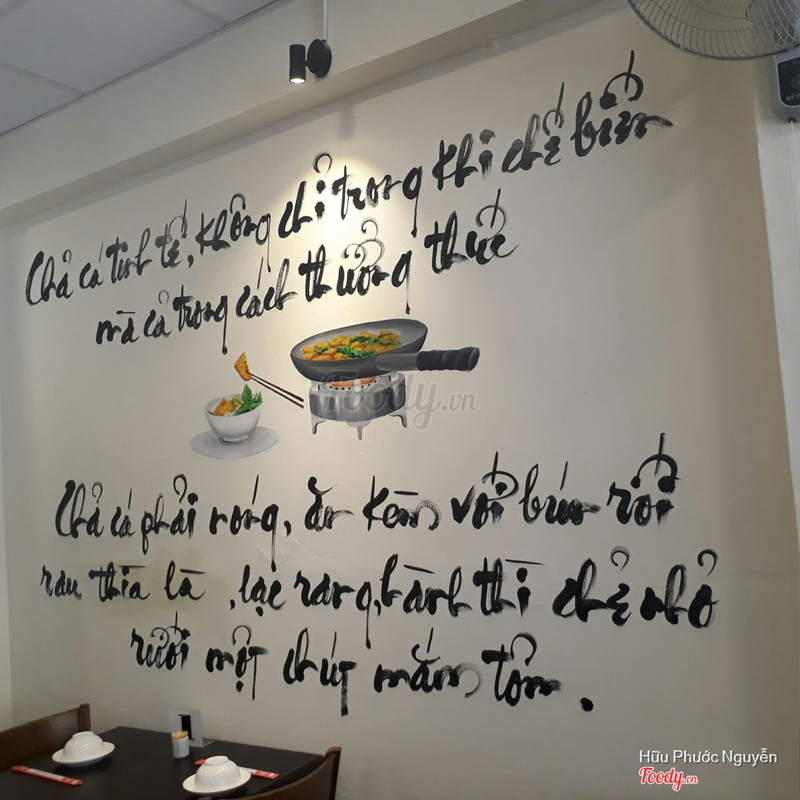 Chả cá tinh tế, không chỉ trong khi chế biến
mà cả trong cách thưởng thức
Foody.vn
Chả cá phải nóng, ăn kèm với bún rối
rau thìa là, lạc rang, hành thì chẻ nhỏ
rưới một chút mắm tôm.
Hữu Phước Nguyễn
Foody.vn